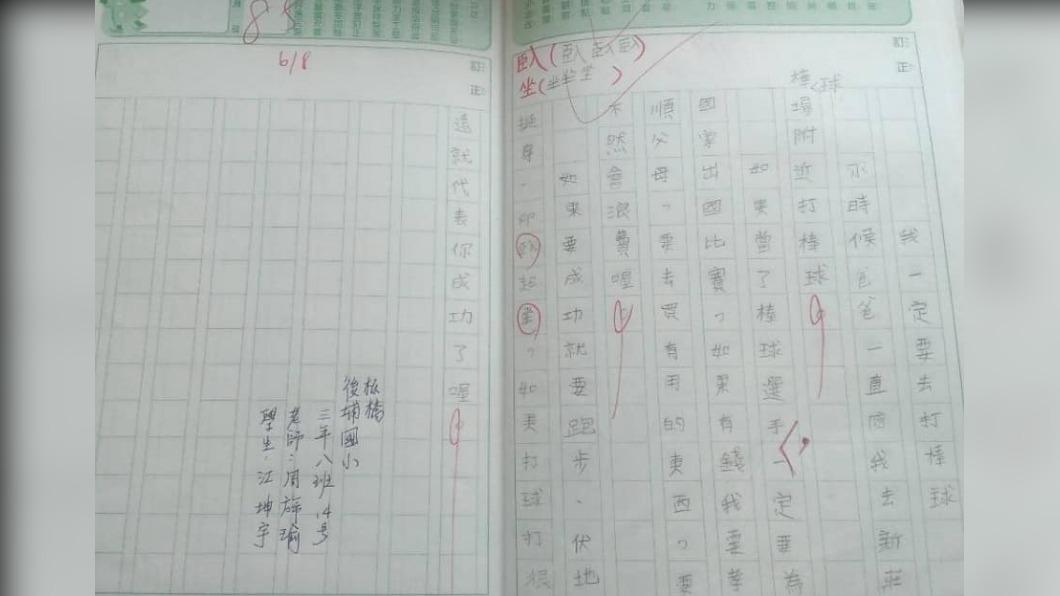 訂正
臥(臥臥臥)
坐(坐坐坐)
我一定要去打棒球
小時候爸爸一直陪我去新莊
棒球場附近打棒球。
如果當了棒球選手,一定要為
國家出國比賽,如果有錢我要孝
順父母,要去買有用的東西,要
不然會浪費喔。
如果要成功就要跑步、伏地
挺身、仰臥起坐,如果打球打很
訂正
85
6/8
遠就代表你成功了喔。
板橋
後埔國小
三年八班14号
老師:周
學生:江坤宇